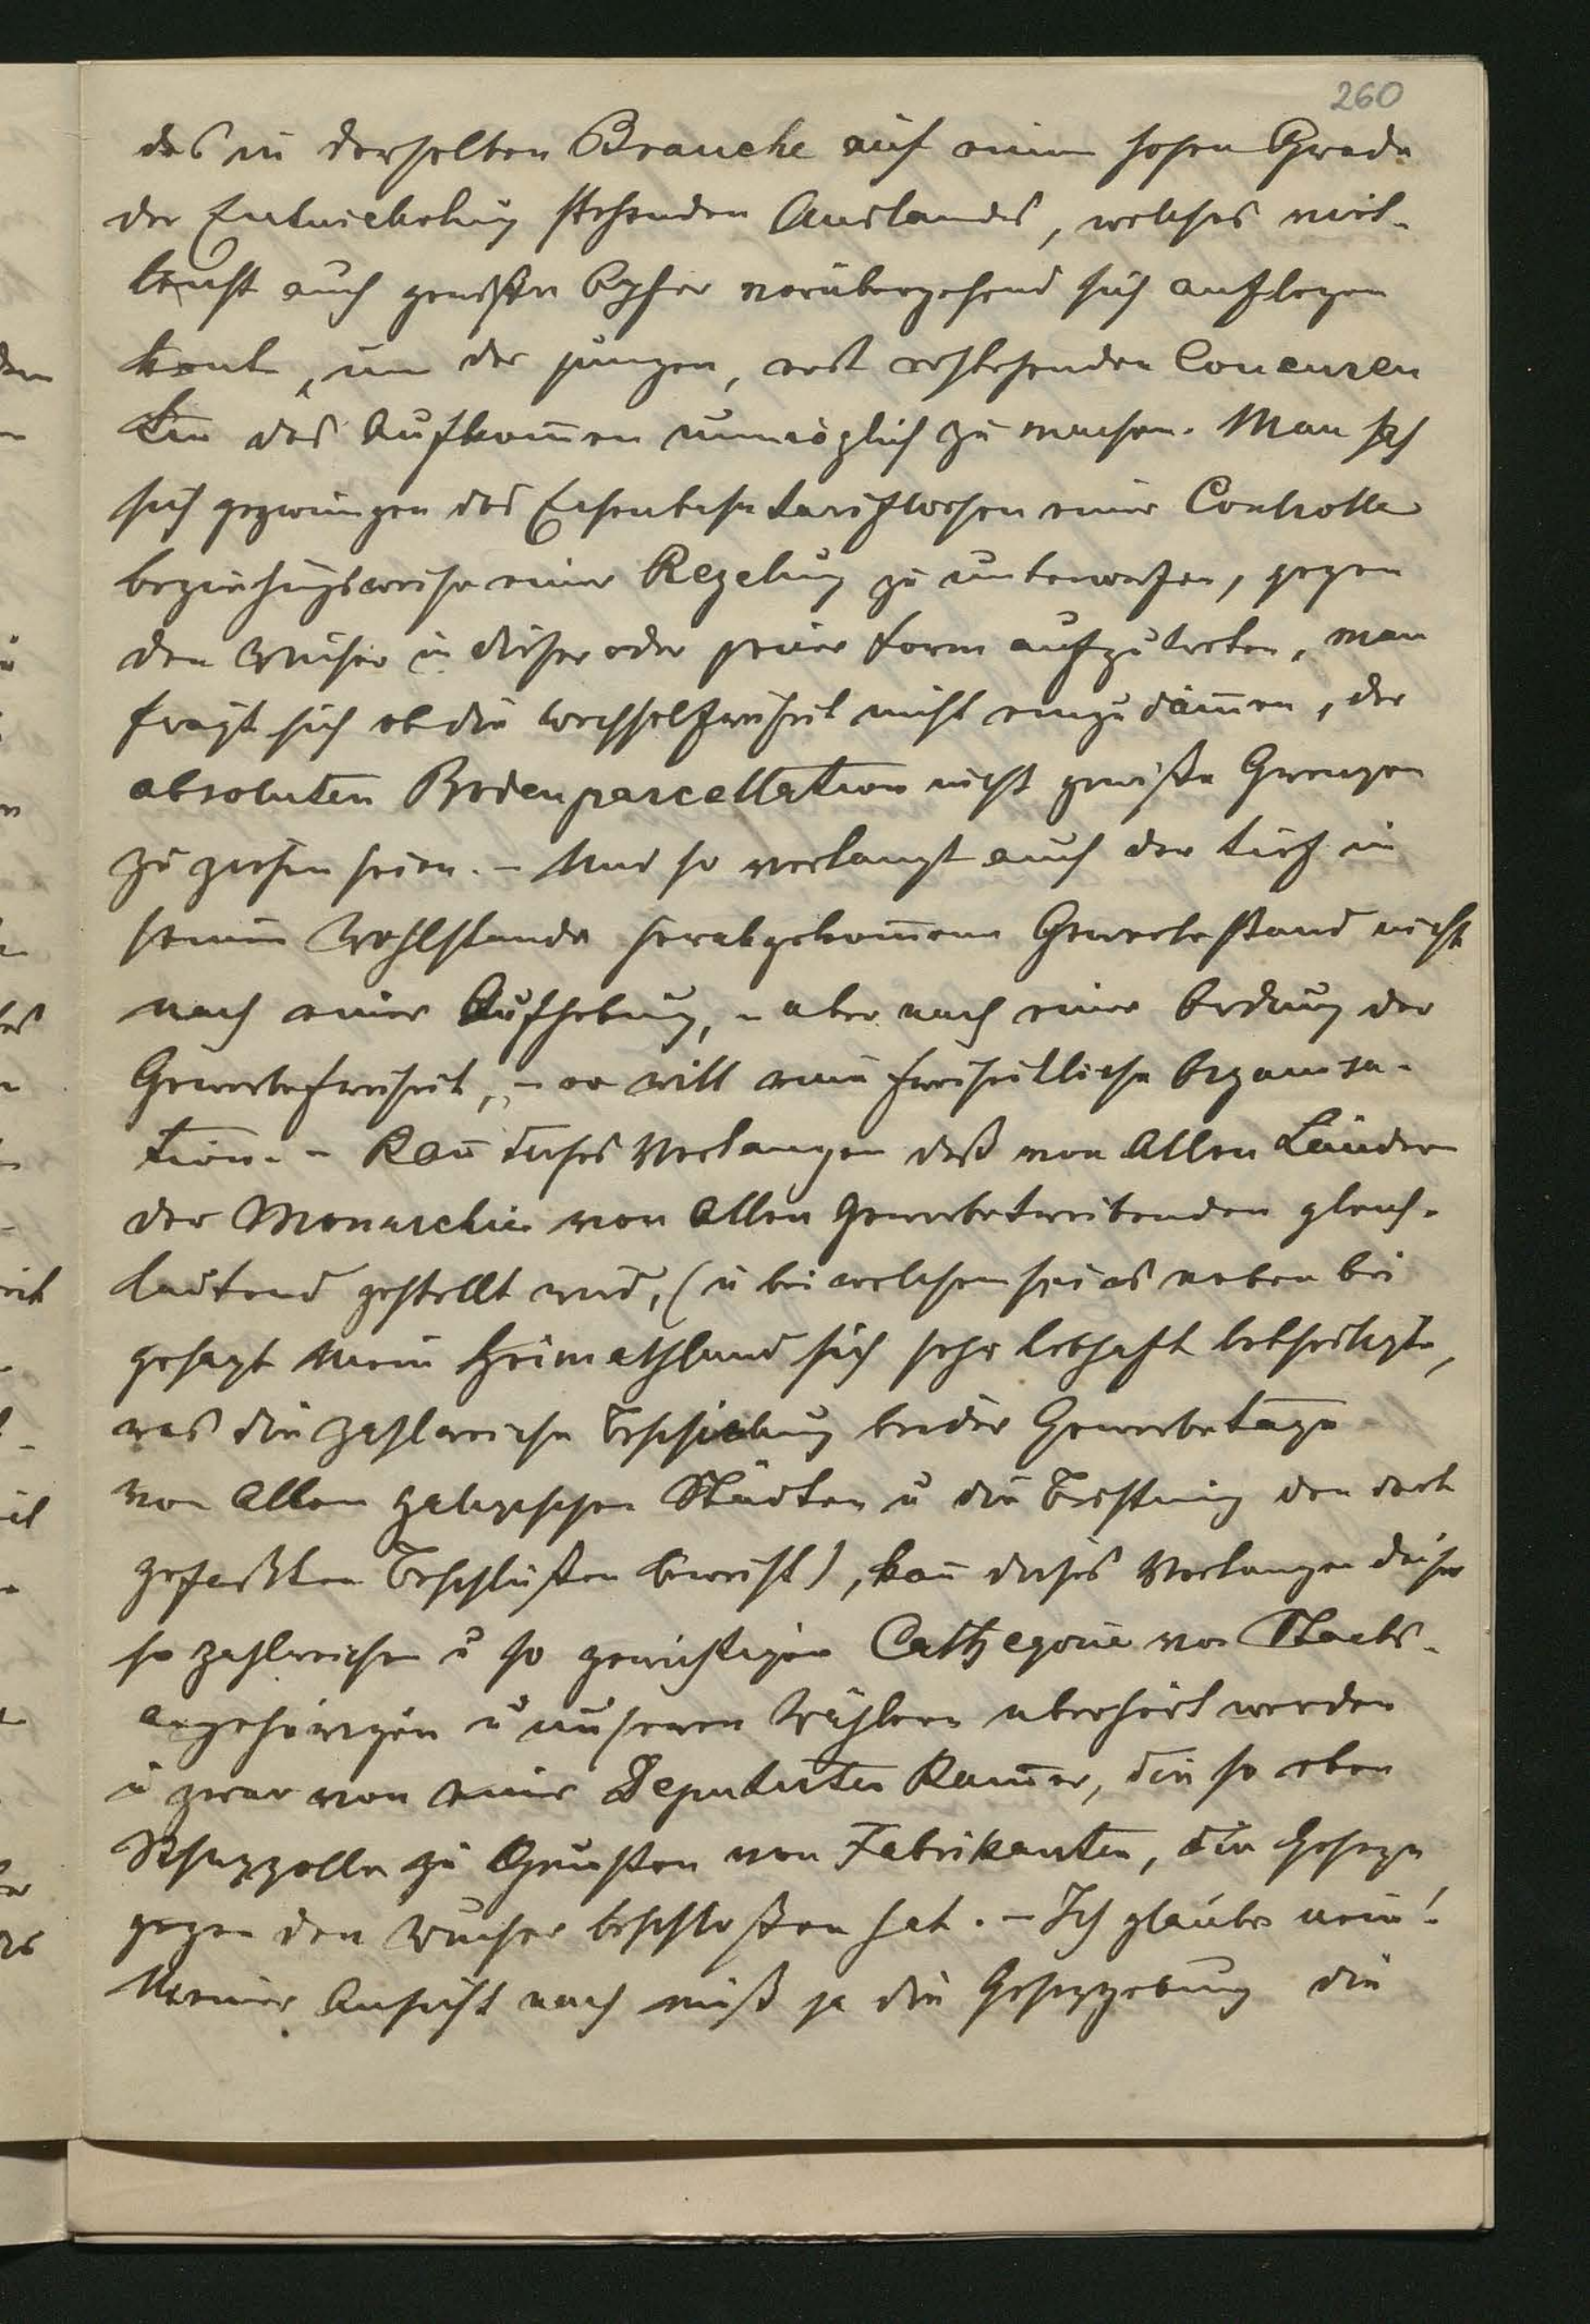 260
des in derselben Branche auf einem hohen Grade
der Entwickelung stehenden Auslandes, welches viel-
leicht auch gewisse Opfer vorübergehend sich auflegen
konte, um der jungen, erst erstehenden Concuren
tin das Aufkom̄en unmöglich zu machen. Man sah
sich gezwungen das Eisenbahntarifwesen einer Controlle
beziehungsweise einer Regelung zu unterwerfen, gegen
den Wucher in dieser oder jener Form aufzutreten, man
frägt sich ob die Wechselfreiheit nicht einzudäm̄en, der
absoluten Bodenparcellation nicht gewiße Grenzen
zu ziehen seien. – Und so verlangt auch der tief in
seinem Wohlstande herabgekom̄ene Gewerbestand nicht
nach einer Aufhebung, – aber nach einer Ordnung der
Gewerbefreiheit, – er will eine freiheitliche Organisa-
tion. – Kan̄ dieses Verlangen daß von Allen Ländern
der Monarchie von Allen Gewerbetreibenden gleich-
lautend gestellt wird, (u bei welchem sei es neben bei
gesagt Mein Heimathland sich sehr lebhaft betheiligte,
was die zahlreiche Beschickung beider Gewerbetage
von Allen galizischen Städten u die den dort
gefaßten Beschlüßen beweist), kan̄ dieses Verlangen dieser
so zahlreichen u so gewichtigen Cathegorie von Staats-
angehörigen u unseren Wählern überhört werden
u zwar von einer Deputirten Kam̄er, die so eben
Schuzzolle zu Gunsten von Fabrikanten, die Geseze
gegen den Wucher beschloßen hat. – Ich glaube nein!
Meiner Ansicht nach muß ja die Gesezgebung die